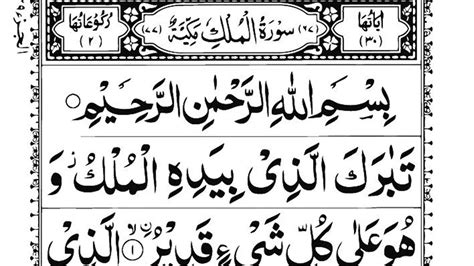 اٰيَاتُهَا (٣٠) (٦٧) سُوْرَةُ الْمُلْكِ مَكِّيَّةٌ (٧٧) رُكُوْعَاتُهَا (٢)
بِسْمِ اللّٰهِ الرَّحْمٰنِ الرَّحِيْمِ
تَبٰرَكَ الَّذِىْ بِيَدِهِ الْمُلْكُ ز وَ
هُوَ عَلٰى كُلِّ شَىْءٍ قَدِيْرُ ۙ ﴿١﴾ ن الَّذِىْ